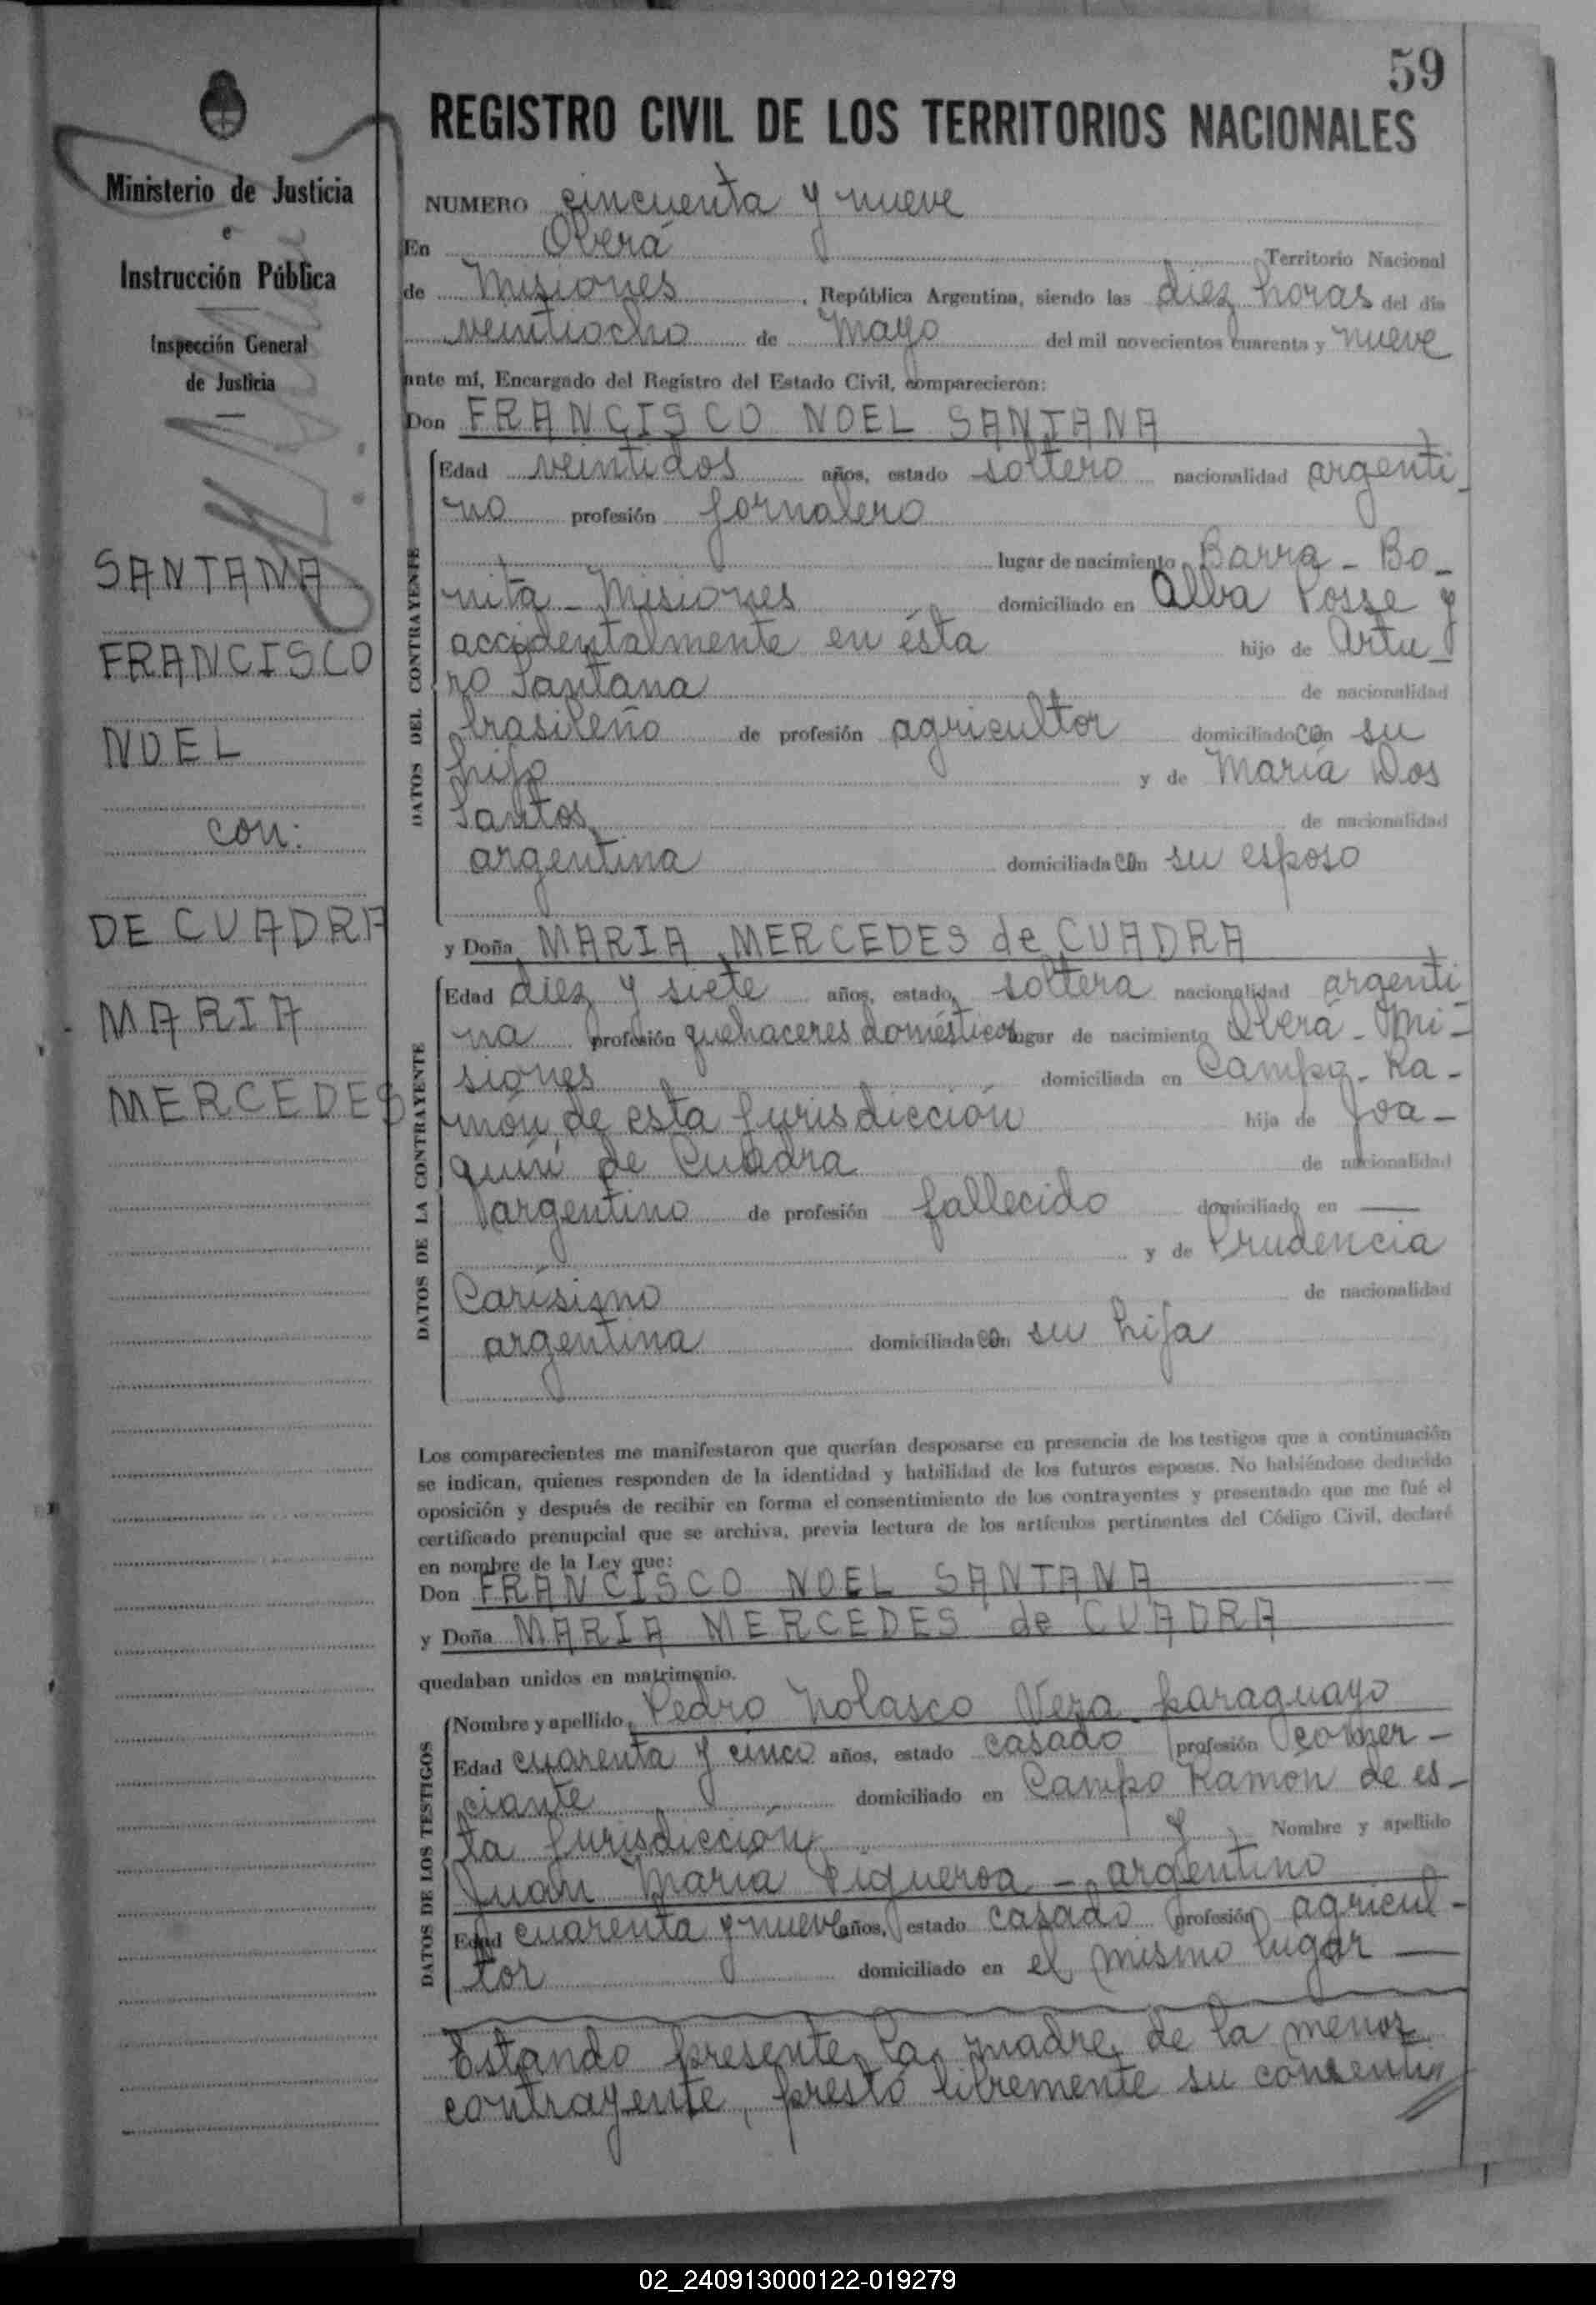 59
REGISTRO CIVIL DE LOS TERRITORIOS NACIONALES
Ministerio de Justicia
e
Instrucción Pública
Inspección General
de Justicia
SANTANA
FRANCISCO
NOEL
con:
DE CUADRA
MARIA
MERCEDES
NUMERO cincuenta y nueve
En Oberá Territorio Nacional
de Misiones, República Argentina, siendo las diez horas del día
veintiocho de Mayo del mil novecientos cuarenta y nueve
ante mí, Encargado del Registro del Estado Civil, comparecieron:
Don FRANCISCO NOEL SANTANA
DATOS DEL CONTRAYENTE
Edad veintidos años, estado soltero nacionalidad argenti-
no profesión jornalero
lugar de nacimiento Barra - Bo-
nita - Misiones domiciliado en Alba Posse y
accidentalmente en ésta hijo de Artu-
ro Santana de nacionalidad
brasileño de profesión agricultor domiciliado con su
hijo y de María Dos
Santos de nacionalidad
argentina domiciliada con su esposo
y Doña MARIA MERCEDES de CUADRA
DATOS DE LA CONTRAYENTE
Edad diez y siete años, estado soltera nacionalidad argenti-
na profesión quehaceres domésticos lugar de nacimiento Oberá - Mi-
siones domiciliada en Campo - Ra-
món, de esta jurisdicción hija de Joa-
quín de Cuadra de nacionalidad
argentino de profesión fallecido domiciliado en —
y de Prudencia
Carísimo de nacionalidad
argentina domiciliada con su hija
Los comparecientes me manifestaron que querían desposarse en presencia de los testigos que a continuación
se indican, quienes responden de la identidad y habilidad de los futuros esposos. No habiéndose deducido
oposición y después de recibir en forma el consentimiento de los contrayentes y presentado que me fué el
certificado prenupcial que se archiva, previa lectura de los artículos pertinentes del Código Civil, declaré
en nombre de la Ley que:
Don FRANCISCO NOEL SANTANA
y Doña MARIA MERCEDES de CUADRA
quedaban unidos en matrimonio.
DATOS DE LOS TESTIGOS
Nombre y apellido Pedro Nolasco Vera - paraguayo
Edad cuarenta y cinco años, estado casado profesión comer-
ciante domiciliado en Campo Ramón de es-
ta jurisdicción y Nombre y apellido
Juan María Figueroa - argentino
Edad cuarenta y nueve años, estado casado profesión agricul-
tor domiciliado en el mismo lugar —
Estando presente la madre de la menor
contrayente, prestó libremente su consenti//
02_240913000122-019279